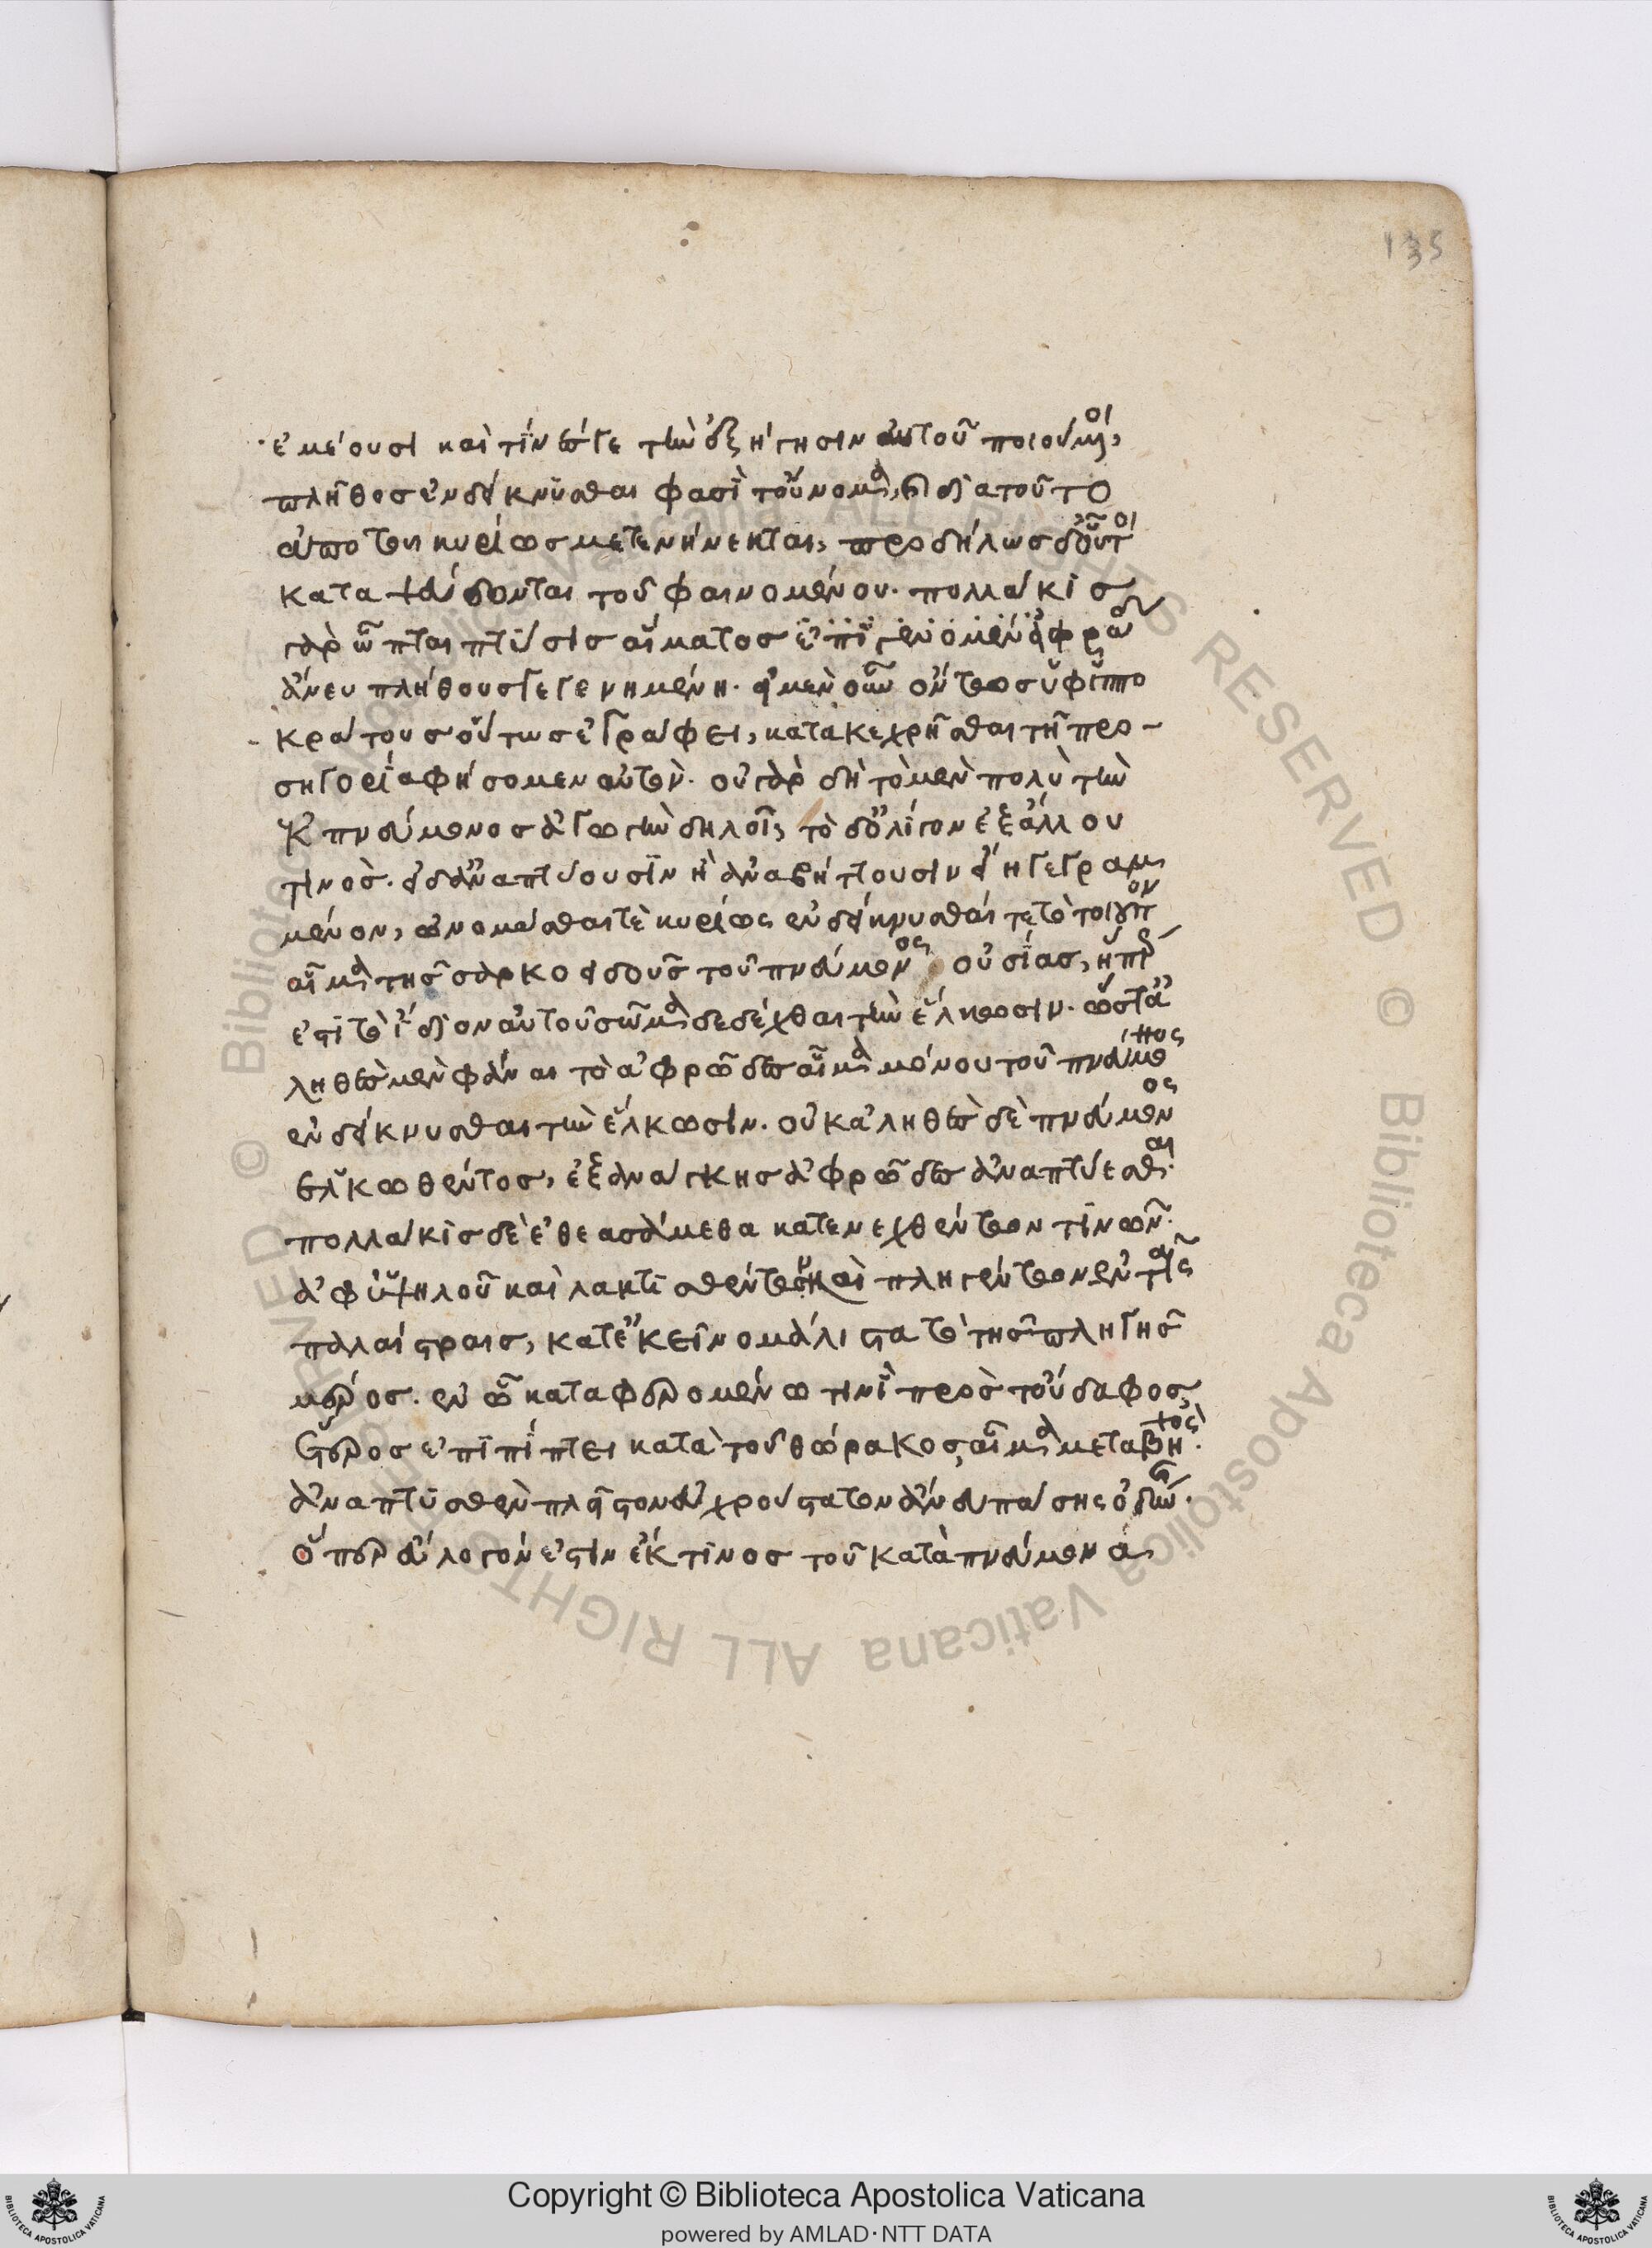 135
ἐμέουσι καὶ τίνές γε τῶν ἐξήγησιν αὐτοῦ ποιούμενοι,
πλῆθος ἐνδείκνυσθαι φασὶ τοὔνομα, διὰ τοῦτο
ἀπὸ τῶν κυρίως μετενήνεκται, προδήλως δ' οὗτοι
καταψεύδονται τοῦ φαινομένου. πολλάκις
γὰρ ὦπται πτύσις αἵματος ἐπιγενομένη ἀφρώδης
ἄνευ πλήθους γεγενημένη. εἰ μὲν οὖν ὄντως ὑφ' ἱππο
κράτους οὕτως ἐγράφει, κατακεχρῆσθαι τῇ προ-
σηγορίᾳ φήσομεν αὐτόν. οὐ γὰρ δὴ τὸ μὲν πολὺ τὴν
ἐκ πνεύμονος ἀγωγὴν δηλοῖ, τὸ δ' ὀλίγον ἐξ ἄλλου
τινός. εἰ δ' ἀναπτύουσιν ἢ ἀναβήττουσιν εἴη γεγραμ
μένον, ὠνομάσθαι τὲ κυρίως ἐνδείκνυσθαί τε τὸ τοιοῦτον
αἷμα τῆς σαρκοειδοῦς τοῦ πνεύμονος οὐσίας, ἥπερ
ἐστὶ τὸ ἴδιον αὐτοῦ σῶμα δεδέχθαι τὴν ἕλκωσιν. ὥστ' ἀ
ληθὲς μὲν φάναι τὸ ἀφρῶδες αἷμα μόνου τοῦ πνεύμονος
ἐνδείκνυσθαι τὴν ἕλκωσιν. οὐκ ἀληθὲς δὲ πνεύμονος
ἑλκωθέντος, ἐξ ἀνάγκης ἀφρῶδες ἀναπτύεσθαι.
πολλάκις δὲ ἐθεασάμεθα κατενεχθέντων τινῶν
ἀφ' ὑψηλοῦ καὶ λακτισθέντων καὶ πληγέντων ἐν ταῖς
παλαίστραις, κατ' ἐκεῖνο μάλιστα τὸ τῆς πληγῆς
μέρος. ἐν ᾧ καταφερομένῳ τινὶ πρὸς τοὔδαφος,
ἕτερος ἐπιπίπτει κατὰ τοῦ θώρακος, αἷμα μετὰ βηχός
ἀναπτυσθὲν πλεῖστον εὐχρούστατον ἄνευ πάσης ὀδύνης.
ὅπερ εὔλογόν ἐστιν ἔκ τινος τοῦ κατὰ πνεύμονα,
Copyright © Biblioteca Apostolica Vaticana
powered by AMLAD·NTT DATA